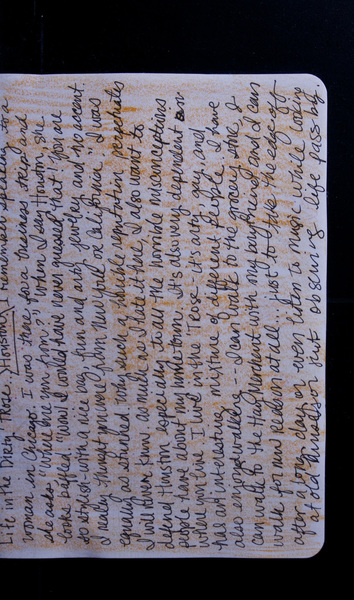 Life in the Dirty. These. Houston. I remember speaking to a
woman in Chicago. I was there for a business trip and
she asks "Where are you from?" When I say Houston, she
looks baffled. "Wow! I would have never guessed that! You are
so stylish - with a nice way, fun and artsy jewelry and no accent.
I really thought you were from New York or California." I was
equally as stunned. Why such a horrible reputation perpetuates
I will never know. As much as I hate it here, I also want to
defend Houston especially to all the horrible misconceptions
people have about my hometown. It's also very dependent on
where you live. I live in the it's very gay, and
has an interesting mixture of different people. I have
also enjoyed walking -- I can walk to the grocery store, I
can walk to the Hay Merchant with my sketchpad and I can
walk for no reason at all... just to take the edge off
after a long day, or even listen to music while looking
at old houses or just observing life pass by.